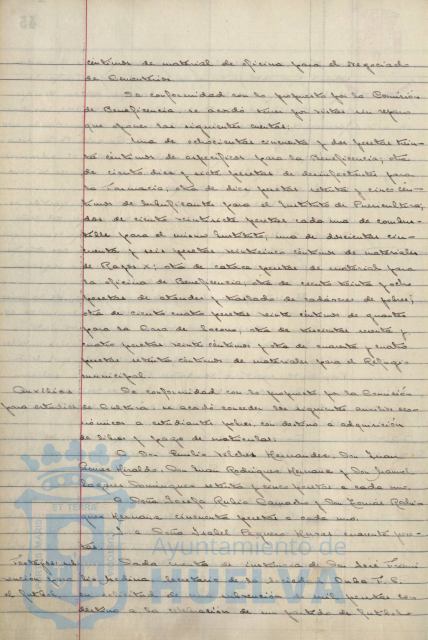 céntimos de material de oficina para el Negociado
de Cementerios.
De conformidad con lo propuesto por la Comisión
de Beneficencia, se acordó tener por vistas sin repa-
que oponer las siguientes cuentas:
Una de ochocientas cincuenta y dos pesetas trein-
ta céntimos de específicos para la Beneficencia; otra
de ciento diez y siete pesetas de desinfectantes para
la Farmacia; otra de diez pesetas setenta y cinco cén-
timos de lubrificante para el Instituto de Puericultura;
dos de ciento veinticinco pesetas cada una de combus-
tible para el mismo Instituto; una de doscientas cin-
cuenta y seis pesetas veinticinco céntimos de materiales
de Rayos X; otra de catorce pesetas de material para
la oficina de Beneficencia; otra de ciento treinta y ocho
pesetas de ataudes y traslado de cadáveres de pobres;
otra de ciento cuatro pesetas veinte céntimos de
para la Casa de Socorro, otra de trescientas sesenta y
cuatro pesetas veinte céntimos y otra de cuarenta y cuatro
pesetas setenta céntimos de materiales para el Refugio
municipal.
Auxilios
para estudios
De conformidad con lo propuesto por la Comisión
de Cultura, se acordó conceder los siguientes auxilios eco-
nómicos a estudiantes pobres, con destino a adquisición
de libros y pago de matrículas:
A Don Emilio Hernández, Don Juan
Gómez Hiraldo, Don Juan Rodríguez y Don
Domínguez setenta y cinco pesetas a cada uno.
A Doña Josefa Rubio y Don Tomás
cincuenta pesetas a cada uno.
Y a Doña Isabel cuarenta pe-
setas.
Dada cuenta de instancia de Don José
Medina, Secretario de la Sociedad Onuba F.C.
el futbol
en solicitud de una subvención de mil pesetas con
destino a la celebración de un partido de futbol
ET TERRA
Ayuntamiento de
HUELVA